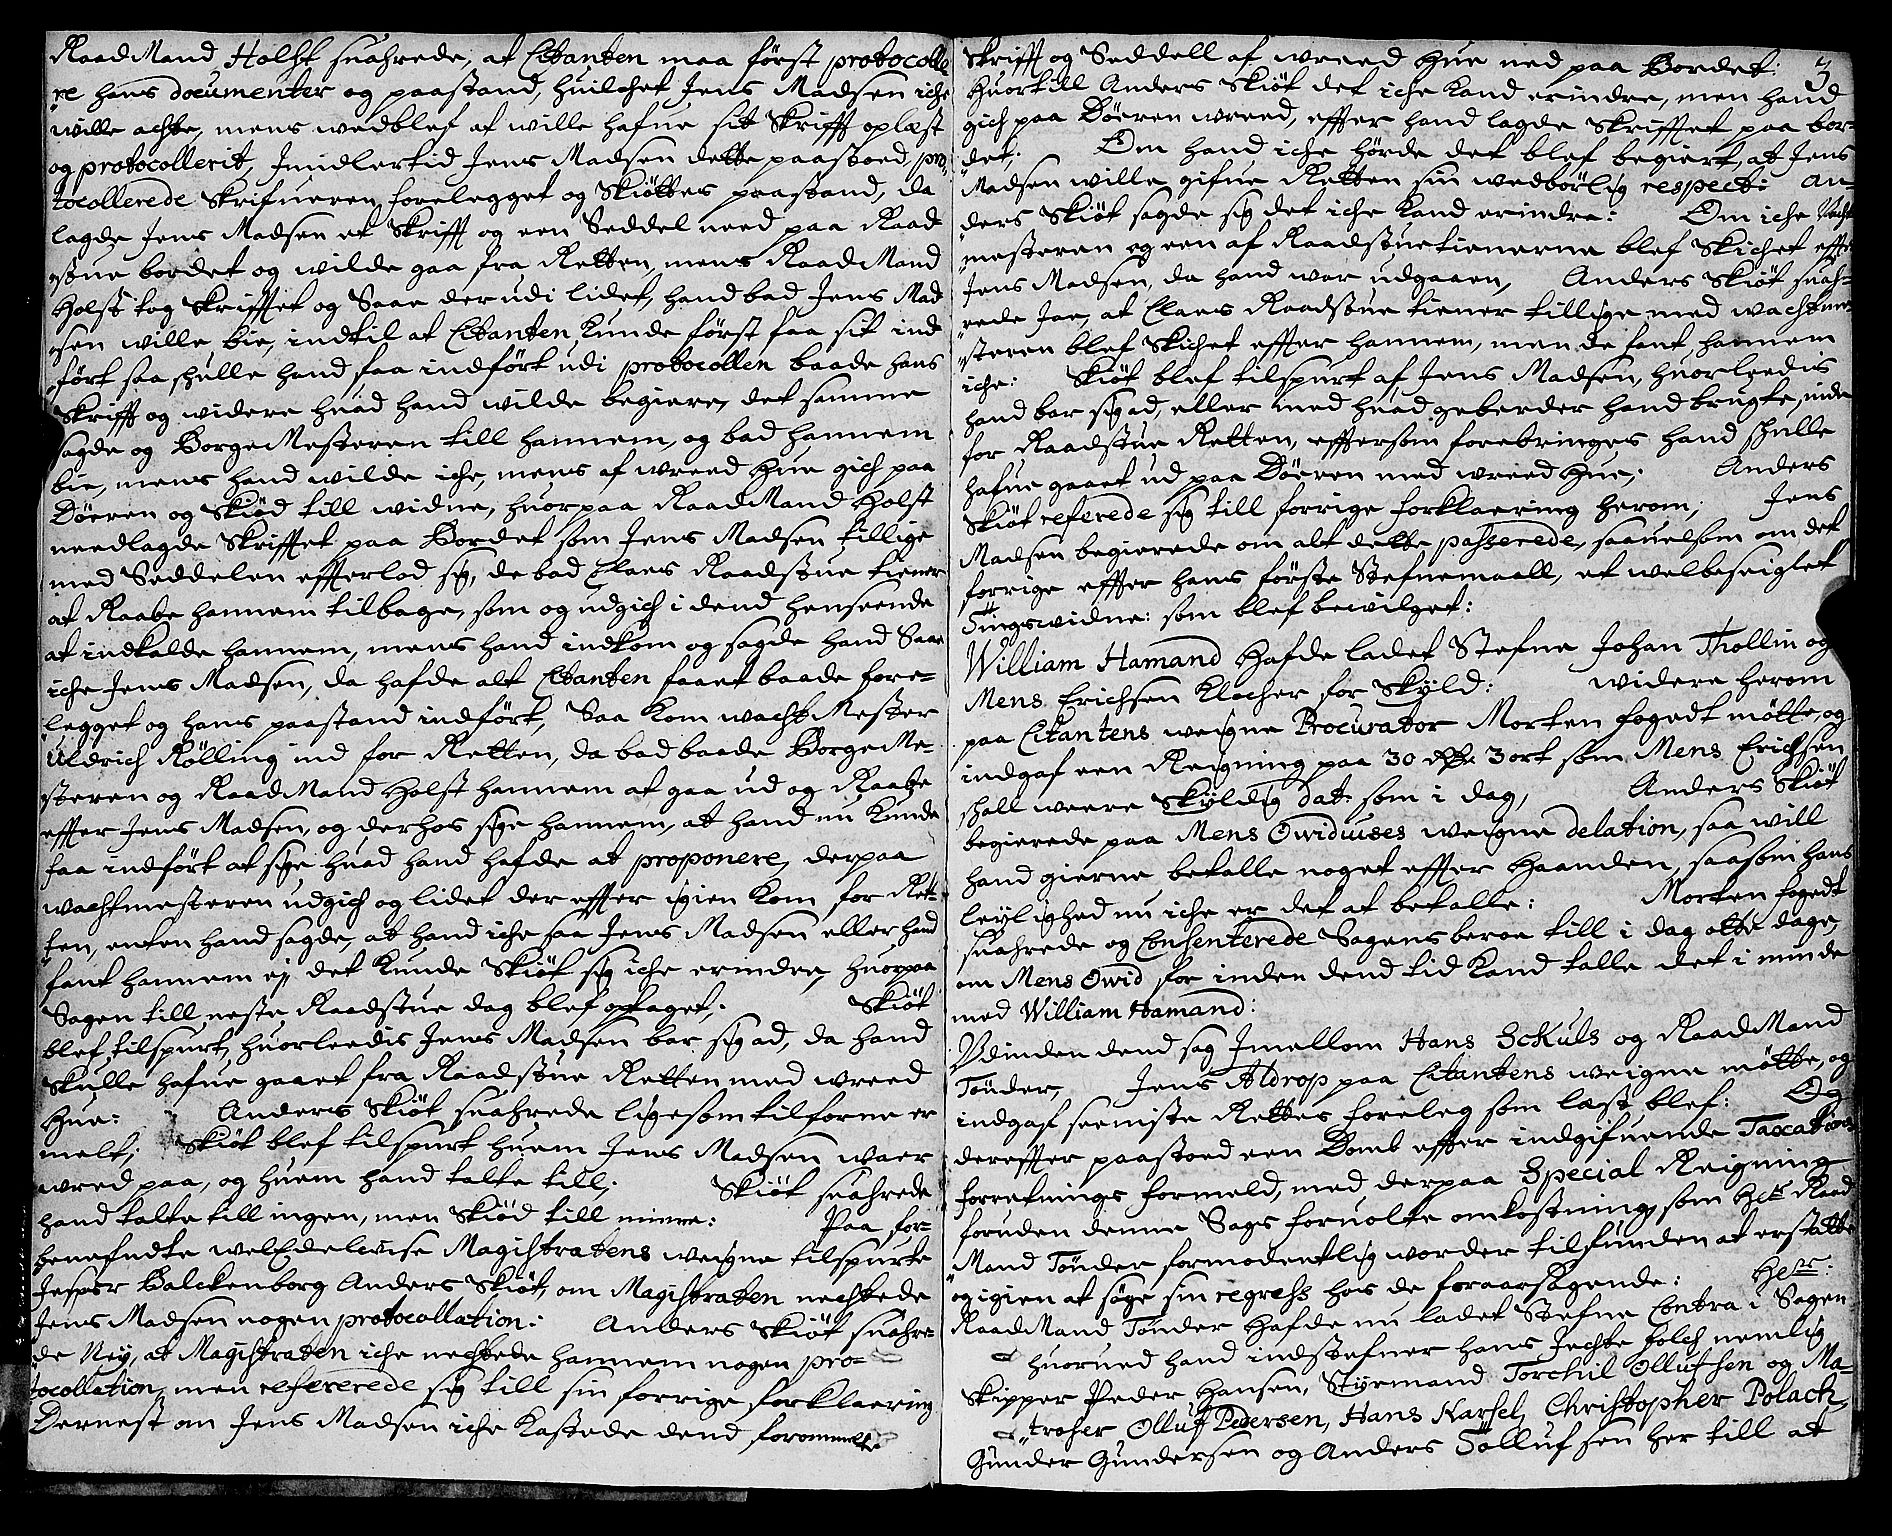 RaadMand Holst suahrede, at Citanten maa först protocolle
re hans documenter og paastand, huilchet Jens Madsen iche
wille achte, mens wedblef at wille hafue sit Skrifft oplæst
og protocollerit, Imidlertid Jens Madsen dette paastoed, pro-
tocollerede Skrifueren forelegget og Skiöttes paastand, da
lagde Jens Madsen et Skrifft og een Seddel need paa Raad
stue bordet og wilde gaa fra Retten, mens RaadMand
Holst tog Skrifftet og Saae der udi lidet, hand bad Jens Mad
sen wille bie, indtil at Citanten Kunde först faa sit ind
fört saa skulle hand faa indfört udi protocollen baade hans
Skrifft og widere huad hand wilde begiere, det samme
sagde og BorgeMesteren till hannem, og bad hannem
bie, mens hand wilde iche, mens af wreed Hue gich paa
Döeren og Skiöd till widne, huorpaa RaadMand Holst
needlagde Skrifftet paa Bordet som Jens Madsen tillige
med Seddelen effterlod sig, de bad Claes Raadstue tiener
at Raabe hannem tilbage, som og udgich i dend henseende
at indkalde hannem, mens hand indkom og sagde hand Saae
iche Jens Madsen, da hafde alt Citanten faaet baade fore-
legget og hans paastand indfört, Saa Kom wacht Mester
Uldrich Rölling ind for Retten, da bad baade BorgeMe-
steren og RaadMand Holst hannem at gaa ud og Raabe
effter Jens Madsen, og derhos sige hannem, at hand nu Kunde
faa indfört at sige huad hand hafde at proponere, derpaa
wachtmesteren udgich og lidet der effter igien Kom for Ret-
ten, enten hand sagde, at hand iche saa Jens Madsen eller hand
fant hannem ej det Kunde Skiöt sig iche erindre, huorpaa
Sagen till neste Raadstue dag blef optaget; Skiöt
blef tilspurt, huorleedis Jens Madsen bar sig ad, da hand
Skulle hafue gaaet fra Raadstue Retten med wreed
Hue: Anders Skiöt suahrede ligesom tilforne er
melt; Skiöt blef tilspurt huem Jens Madsen waer
wred paa, og huem hand talte till; Skiöt suahrede
hand talte till ingen, men Skiöd till minne: Paa for-
benefndte welEdelwise Magistratens weigne tilspurte
Jesper Balckenborg Anders Skiöt, om Magistraten nechtede
Jens Madsen nogen protocollation: Anders Skiöt suahre-
de Ney, at Magistraten iche nechtede hannem nogen pro-
tocollation, men refererede sig till sin forrige forklaering
Dernest om Jens Madsen iche Kastede dend forommelte
3
Skrifft og Seddell af wreed Hue ned paa Bordet:
Huortill Anders Skiöt det iche Kand erindre, men hand
gich paa Döeren wreed, effter hand lagde Skrifftet paa bor-
det; Om hand iche hörde det blef begiert, at Jens
Madsen wille gifue Retten sin wedbörlig respect: An-
ders Skiöt sagde sig det iche Kand erindre: Om iche Wacht
mesteren og een af Raadstue tienerne blef Skichet effter
Jens Madsen, da hand war udgaaen, Anders Skiöt suah-
rede Jae, at Claes Raadstue tiener tillige med wachtme-
steren blef Skichet effter hannem, men de fant hannem
iche: Skiöt blef tilspurt af Jens Madsen, huorleedis
hand bar sig ad, eller med huad geberder hand brugte, inde
for Raadstue Retten, efftersom forebringes hand skulle
hafue gaaet ud paa Döeren med wreed Hue; Anders
Skiöt referede sig till forrige forklaering herom; Jens
Madsen begierede om alt dette passerede, saauelsom om det
forrige effter hans förste Stefnemaall, et welbeseiglet
Tingswidne: som blef bewilget:
William Hamand Hafde ladet Stefne Johan Thollin og
Mens Erichsen Klocher for Skyld: widere herom
paa Citantens weigne Procurator Morten fogedt mötte, og
indgaf een Reigning paa 30 Rdr 3 ort som Mens Erichsen
shall weere Skyldig dat: som i dag, Anders Skiöt
begierede paa Mens Owidiuses weigne delation, saa will
hand gierne betalle noget effter Haanden, saasom hans
leylighed nu iche er det at betalle: Morten fogedt
suahrede og Consenterede Sagens beroe till i dag otte dage,
om Mens Owid for inden dend tid Kand talle det i minde
med William Hamand:
Udinden dend sag Imellom Hans Schuls og RaadMand
Tönder, Jens Aldrop paa Citantens weigne mötte, og
indgaf seeniste Rettes foreleg som læst blef: Og
dereffter paastoed een Domb effter indgifuende Taxations
forretnings formeld, med derpaa Special Reigning
foruden denne Sags foruolte omkostning, som Hr Raad
Mand Tönder formodentlig worder tilfunden at erstatte
og igien at söge sin regress hos de foraarsagende: Hr:
RaadMand Tönder Hafde nu ladet Stefne Contra i Sagen
huorued hand indstefner hans Jechte folch nemlig
Skipper Peder Hansen, Styrmand Torchil Ollufsen og Ma-
troser Olluf Pedersen, Hans Karsel, Christopher Polach,
Gunder Gundersen og Anders Tollufsen her till at